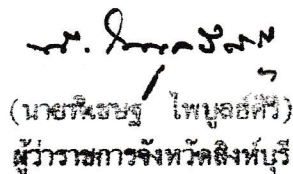 (นายพิเชษฐ ไพบูลย์ศิริ)
ผู้ว่าราชการจังหวัดสิงห์บุรี